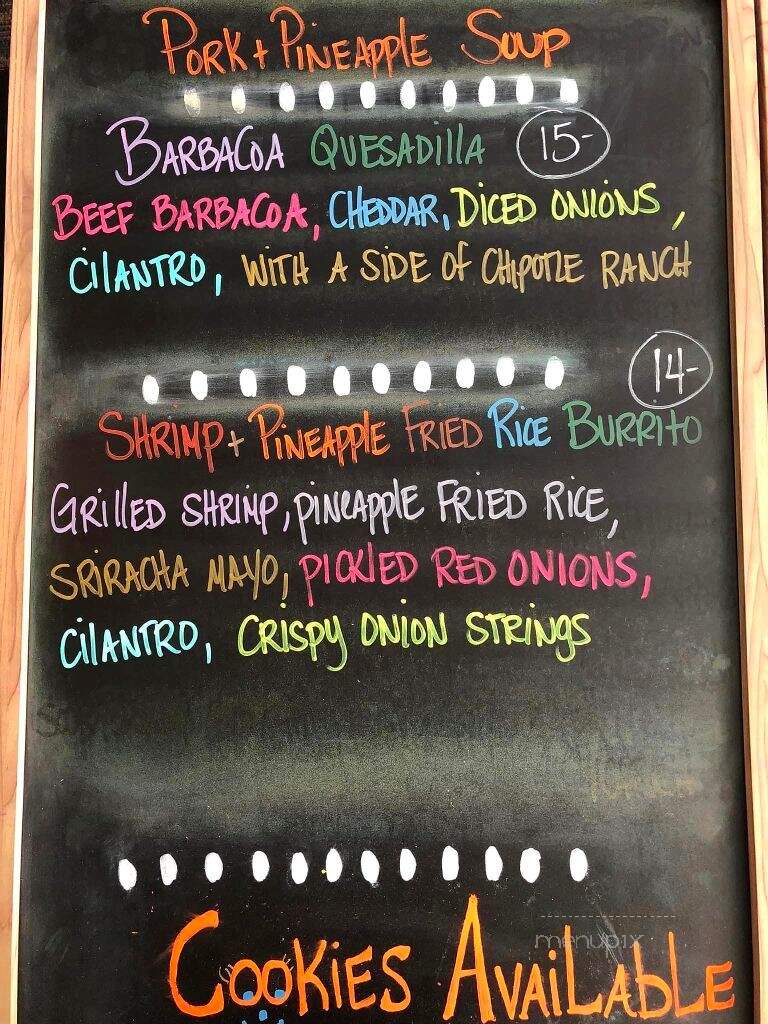 Pork + Pineapple Soup
Barbacoa Quesadilla 15-
Beef Barbacoa, Cheddar, Diced Onions,
Cilantro, with a side of Chipotle Ranch
14-
Shrimp + Pineapple Fried Rice Burrito
Grilled Shrimp, pineapple Fried Rice,
Sriracha Mayo, Pickled Red Onions,
Cilantro, Crispy Onion Strings
menupix
Cookies Available